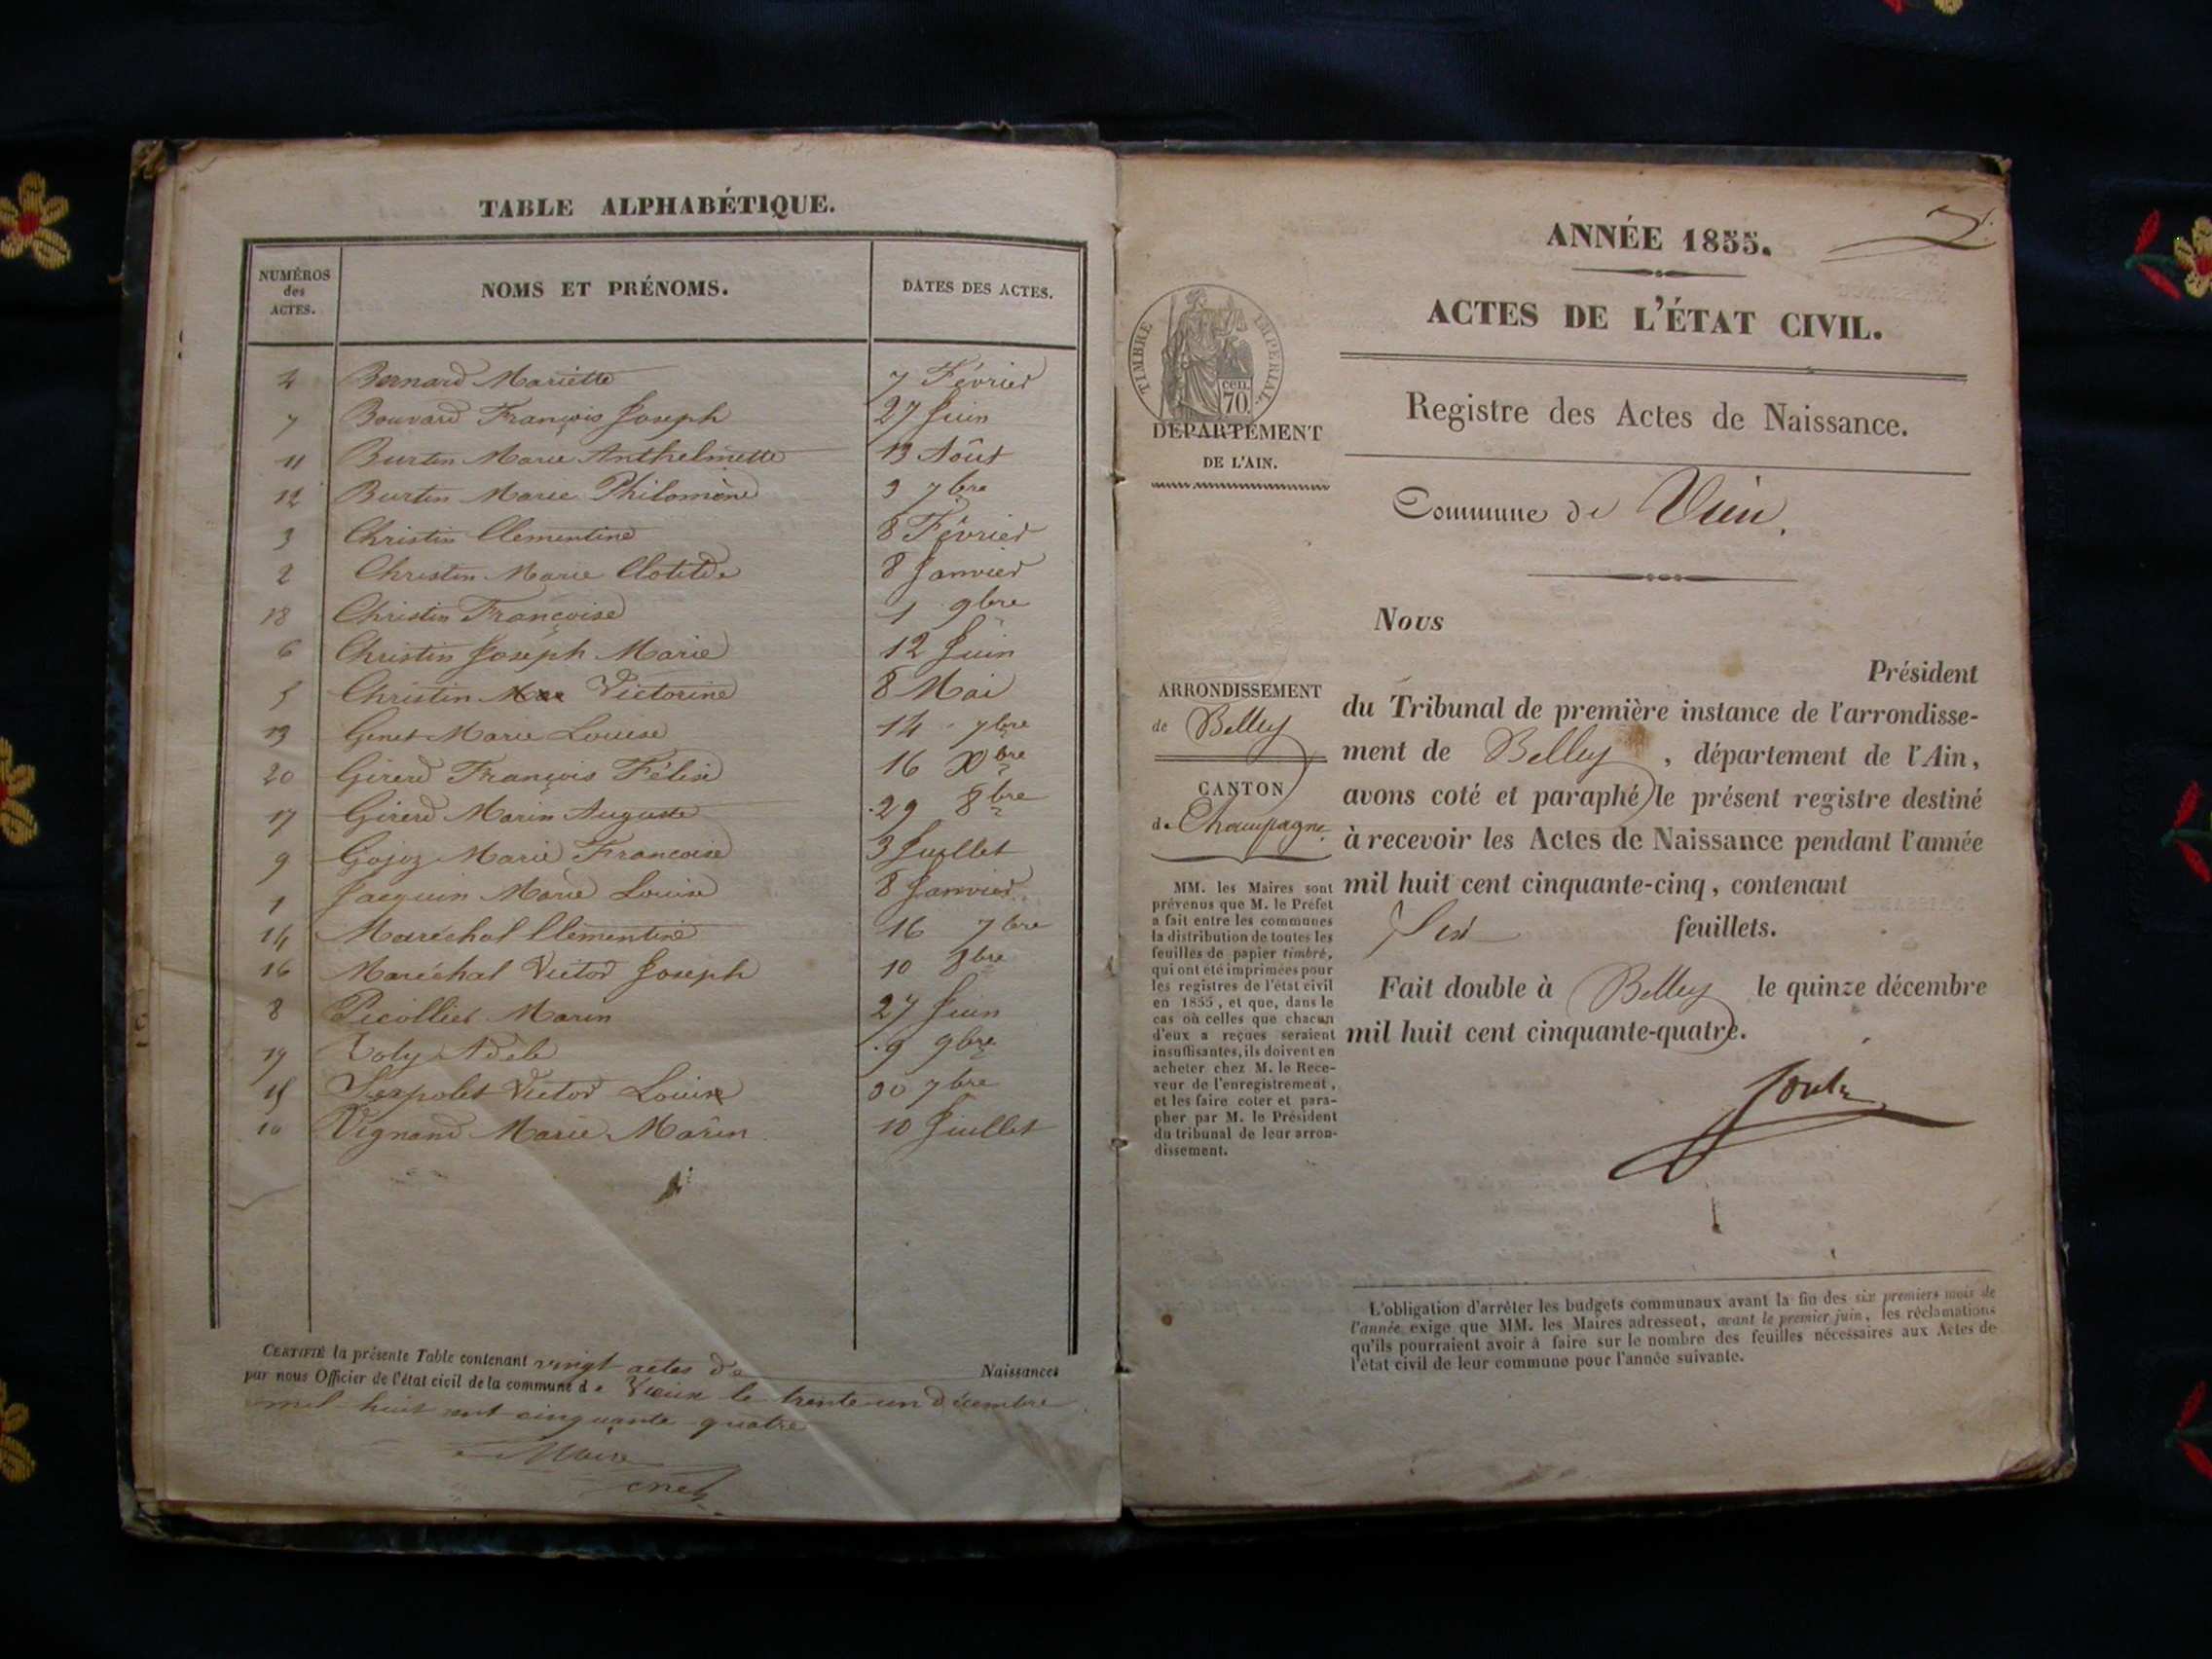 TABLE ALPHABÉTIQUE.
NUMÉROS des ACTES. NOMS ET PRÉNOMS. DATES DES ACTES.
4 Bernard Mariette 7 Février
7 Bouvard François Joseph 27 Juin
11 Burtin Marie Anthelmette 13 Août
12 Burtin Marie Philomène 3 7bre
3 Christin Clementine 8 Février
2 Christin Marie Clotilde 8 Janvier
18 Christin Françoise 1 9bre
6 Christin Joseph Marie 12 Juin
5 Christin Victorine 8 Mai
13 Genet Marie Louise 14 7bre
20 Girerd François Félix 16 Xbre
17 Girerd Marin Auguste 29 8bre
9 Gojoz Marie Francoise 3 Juillet
1 Jacquin Marie Louise 8 Janvier
14 Maréchal Clementine 16 7bre
16 Maréchal Victor Joseph 10 8bre
8 Picollet Marin 27 Juin
19 Adele 9 9bre
15 Serpolet Victor Louis 30 7bre
10 Vignand Marie Marin 10 Juillet
CERTIFIÉ la présente Table contenant vingt actes de Naissances
par nous Officier de l'état civil de la commune de Vieux le trente un décembre
mil huit cent cinquante quatre
Maire
ANNÉE 1855.
ACTES DE L'ÉTAT CIVIL.
TIMBRE IMPERIAL
cen.
70
DEPARTEMENT
DE L'AIN.
Registre des Actes de Naissance.
Commune de Vieu.
Nous
Président
ARRONDISSEMENT
de Belley
CANTON
de Champagne
du Tribunal de première instance de l'arrondisse-
ment de Belley, département de l'Ain,
avons coté et paraphé le présent registre destiné
à recevoir les Actes de Naissance pendant l'année
mil huit cent cinquante-cinq, contenant
Six feuillets.
Fait double à Belley le quinze décembre
mil huit cent cinquante-quatre.
MM. les Maires sont
prévenus que M. le Préfet
a fait entre les communes
la distribution de toutes les
feuilles de papier timbré,
qui ont été imprimées pour
les registres de l'état civil
en 1855, et que, dans le
cas où celles que chacun
d'eux a reçues seraient
insuffisantes, ils doivent en
acheter chez M. le Rece-
veur de l'enregistrement,
et les faire coter et para-
pher par M. le Président
du tribunal de leur arron-
dissement.
L'obligation d'arrêter les budgets communaux avant la fin des six premiers mois de
l'année exige que MM. les Maires adressent, avant le premier juin, les réclamations
qu'ils pourraient avoir à faire sur le nombre des feuilles nécessaires aux Actes de
l'état civil de leur commune pour l'année suivante.